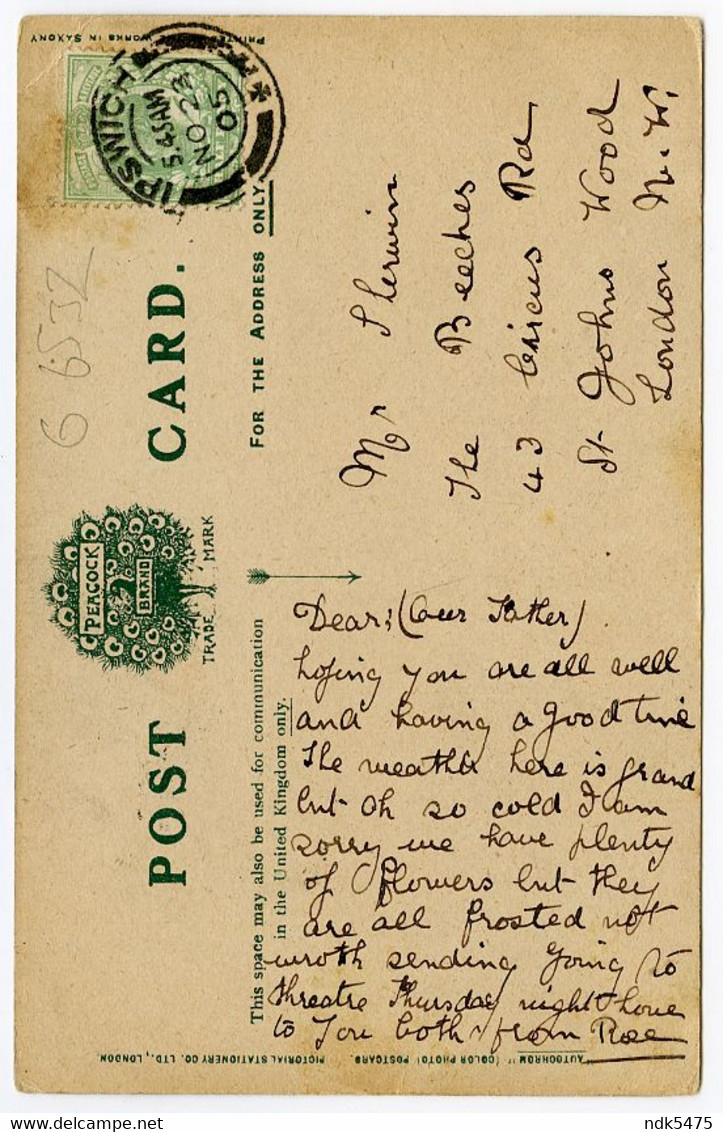 POST CARD.
PEACOCK
BRAND
TRADE MARK
This space may also be used for communication
in the United Kingdom only.
FOR THE ADDRESS ONLY
IPSWICH
5.45AM
NO 22
05
6 6532
Dear; (Our Father)
hoping you are all well
and having a good time
The weather here is grand
but Oh so cold I am
sorry we have plenty
of flowers but they
are all frosted not
wroth sending Going to
threatre Thursday night love
to You both from Rose
Mr Sherwin
The Beeches
43 Circus Rd
St Johns Wood
London N.W.
"AUTOCHROM" (COLOR PHOTO) POSTCARD. PICTORIAL STATIONERY CO. LTD., LONDON.
WORKS IN SAXONY
ndk5475